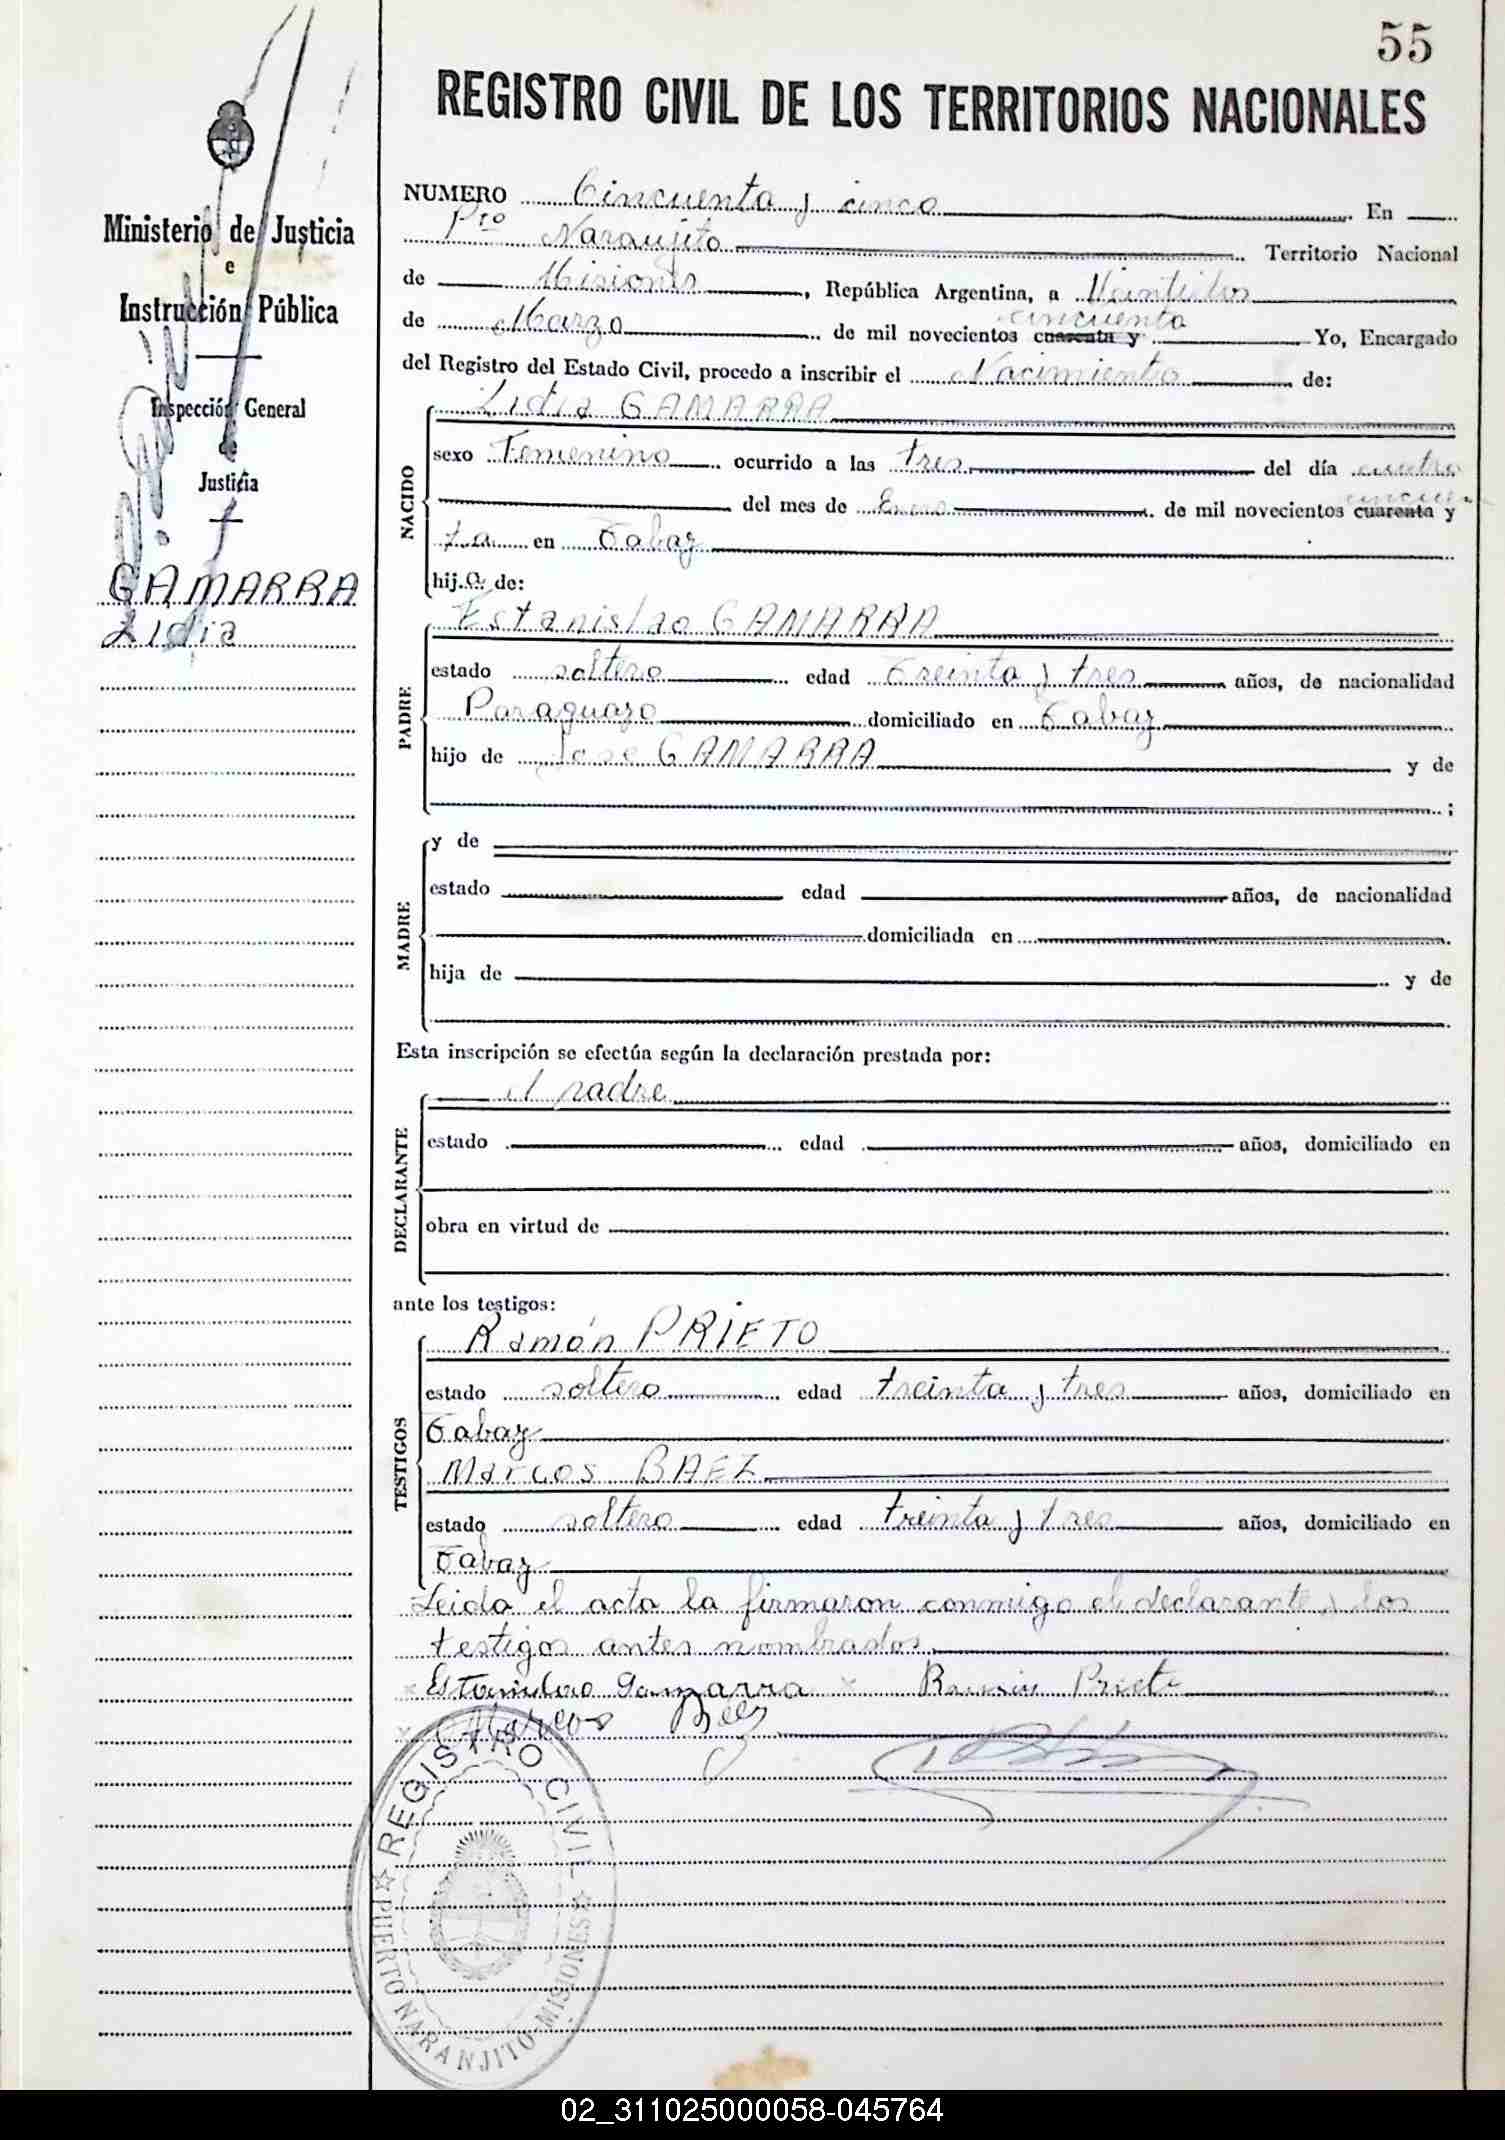 55
REGISTRO CIVIL DE LOS TERRITORIOS NACIONALES
Ministerio de Justicia
e
Instrucción Pública
Inspección General
Justicia
GAMARRA
Lidia
NUMERO Cincuenta y cinco En
Pto Naranjito Territorio Nacional
de Misiones, República Argentina, a Veintidos
de Marzo de mil novecientos cuarenta y cincuenta Yo, Encargado
del Registro del Estado Civil, procedo a inscribir el Nacimiento de:
NACIDO
Lidia GAMARRA
sexo Femenino ocurrido a las tres del día cuatro
del mes de Enero de mil novecientos cuarenta y cincuen
ta en Tabay
hij.a de:
PADRE
Estanislao GAMARRA
estado soltero edad treinta y tres años, de nacionalidad
Paraguayo domiciliado en Tabay
hijo de Jose GAMARRA y de
;
MADRE
y de
estado edad años, de nacionalidad
domiciliada en
hija de y de
Esta inscripción se efectúa según la declaración prestada por:
DECLARANTE
el padre
estado edad años, domiciliado en
obra en virtud de
ante los testigos:
TESTIGOS
Ramón PRIETO
estado soltero edad treinta y tres años, domiciliado en
Tabay
Marcos BAEZ
estado soltero edad treinta y tres años, domiciliado en
Tabay
Leida el acta la firmaron conmigo el declarante y los
testigos antes nombrados.
x Estanislao Gamarra x Ramon Prieto
x Marcos Baez
REGISTRO CIVIL
PUERTO NARANJITO-MISIONES
02_311025000058-045764